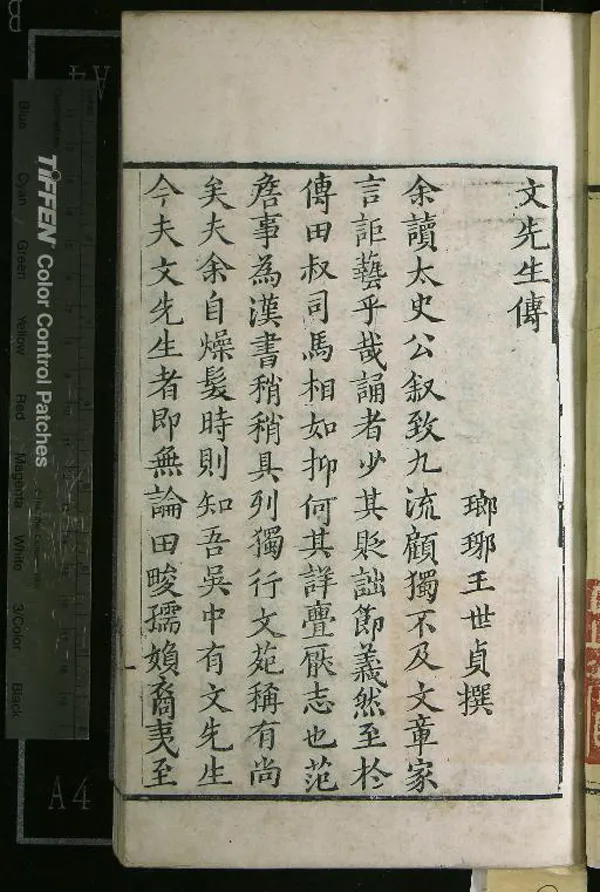 文先生傳
瑯琊王世貞撰
余讀太史公叙致九流顧獨不及文章家
言詎藝乎哉誦者少其貶詘節義然至於
傳田叔司馬相如抑何其詳亹厭志也范
詹事為漢書稍稍具列獨行文苑稱有尚
矣夫余自燥髮時則知吾吳中有文先生
今夫文先生者即無論田畯孺媍裔夷至
TIFFEN Color Control Patches
Blue
Cyan
Green
Yellow
Red
Magenta
White
3/Color
Black
A4
A4